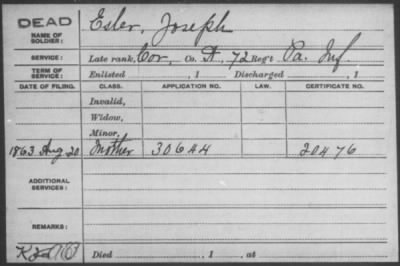 DEAD
NAME OF SOLDIER: Esler, Joseph
SERVICE: Late rank, Cor, Co. A, 72 Reg't Pa. Inf
TERM OF SERVICE: Enlisted , 1 Discharged , 1
DATE OF FILING. CLASS. APPLICATION NO. LAW. CERTIFICATE NO.
Invalid,
Widow,
Minor,
1863 Aug 20 Mother 30644 20476
ADDITIONAL SERVICES:
REMARKS:
Died , 1 , at